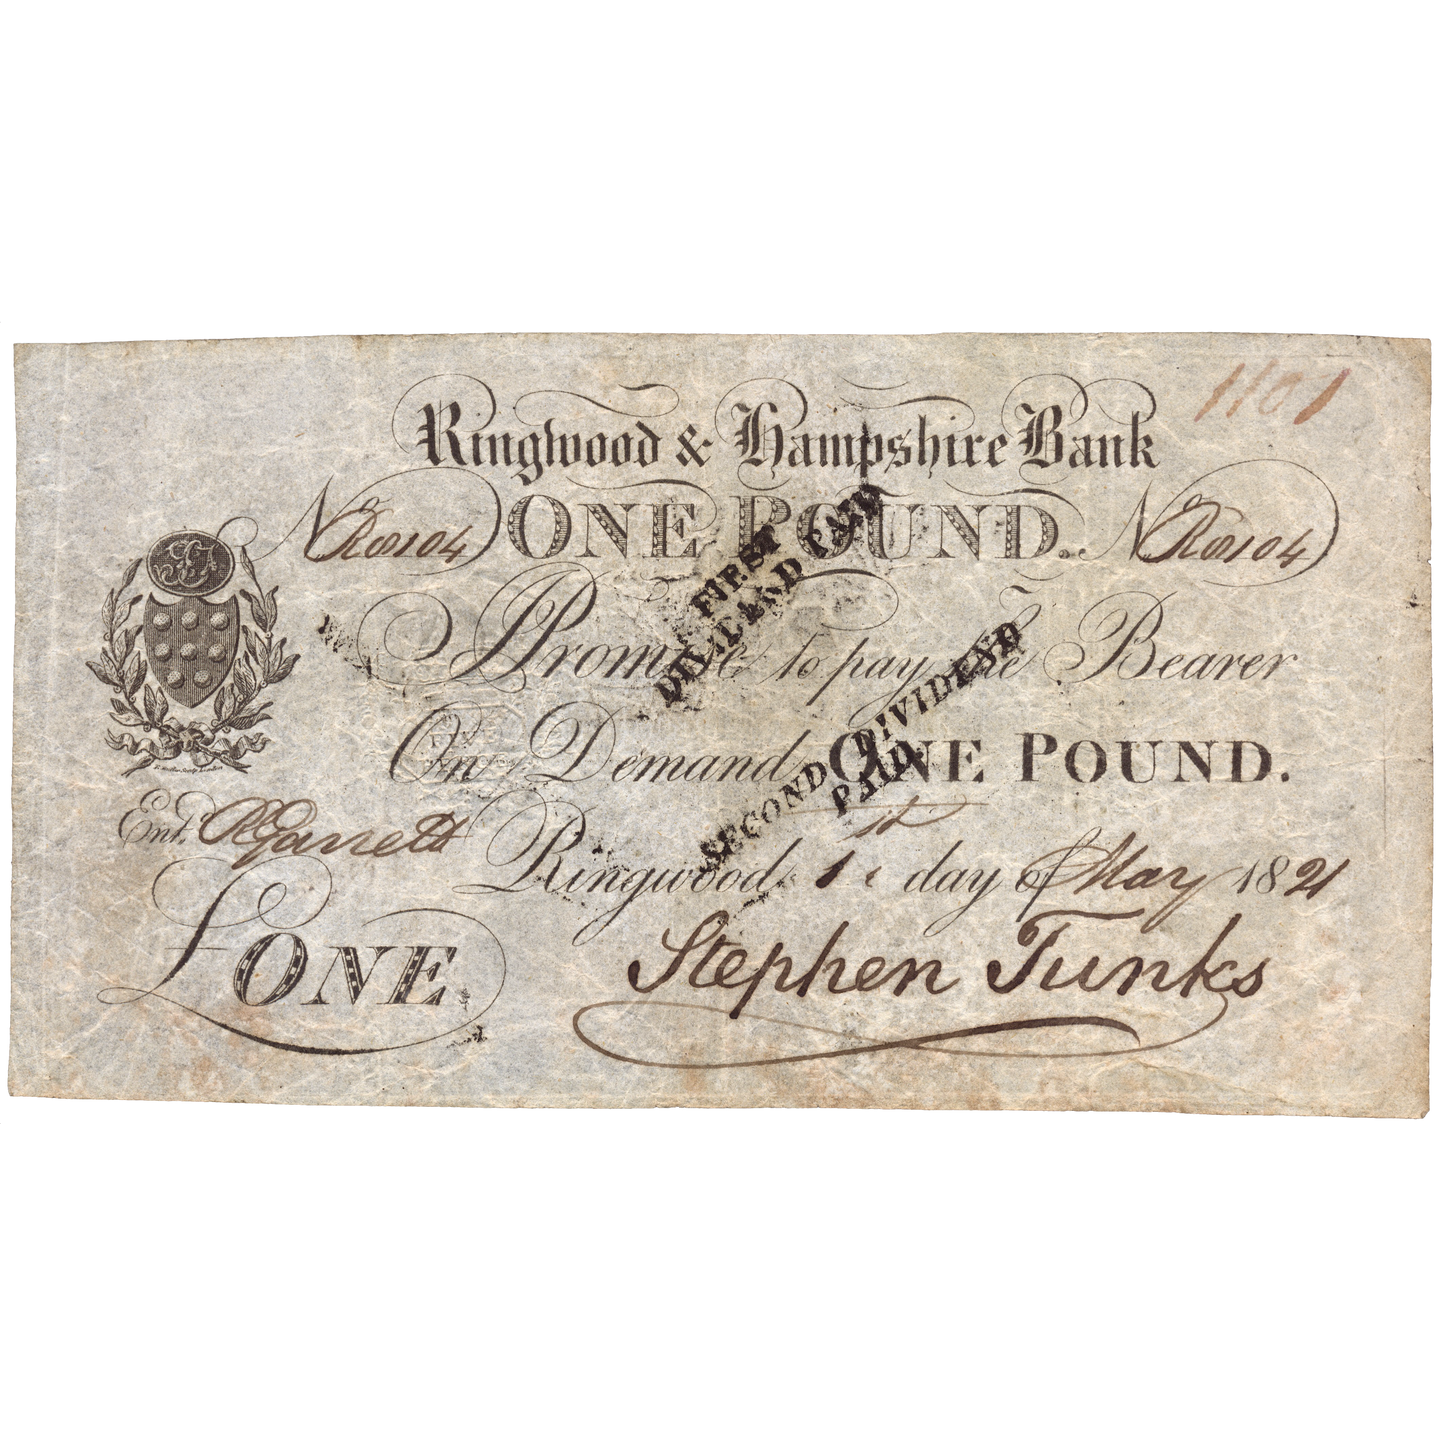 1101
Ringwood & Hampshire Bank
No R8104 ONE POUND. No R8104
I Promise to pay the Bearer
On Demand ONE POUND.
Ent.d R Garrett
Ringwood, 1st day of May 1821
£ONE. Stephen Tunks
FIRST
DIVIDEND PAID
SECOND DIVIDEND
PAID.